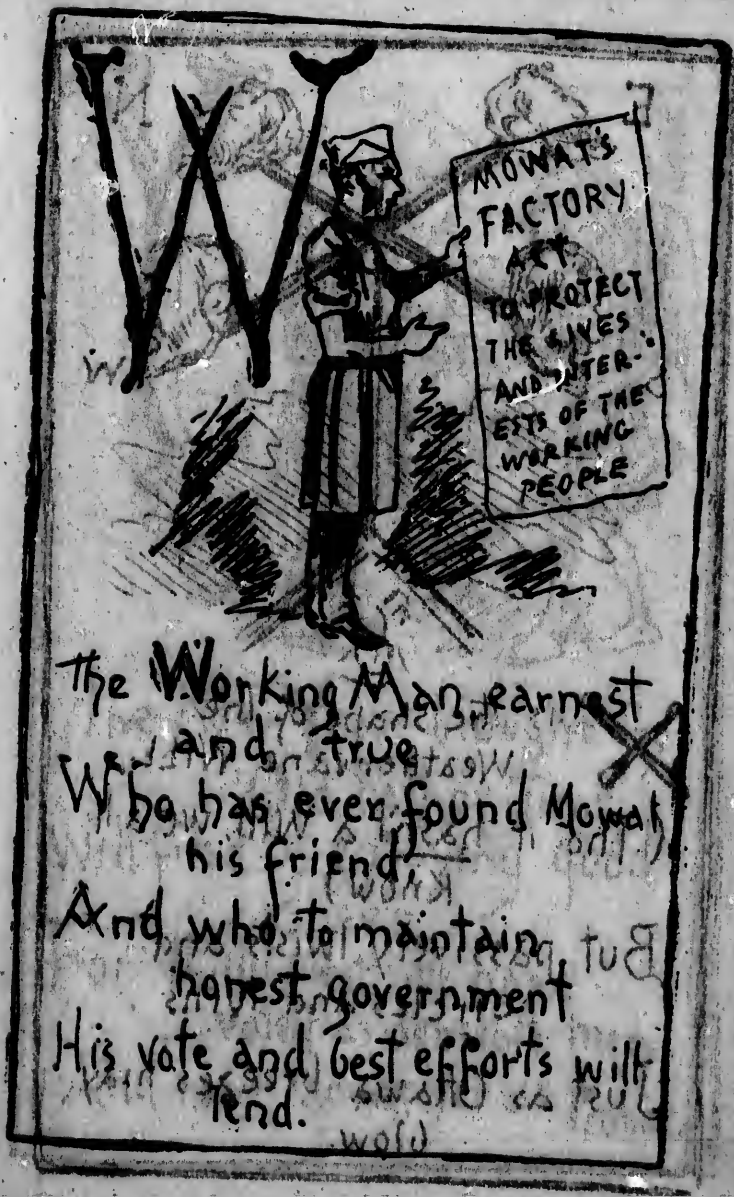 W
MOWAT'S
FACTORY
ACT
TO PROTECT
THE LIVES
AND INTER-
ESTS OF THE
WORKING
PEOPLE
The Working Man earnest
and true
Who has ever found Mowat
his friend
And who, to maintain
honest government
His vote and best efforts will
lend.